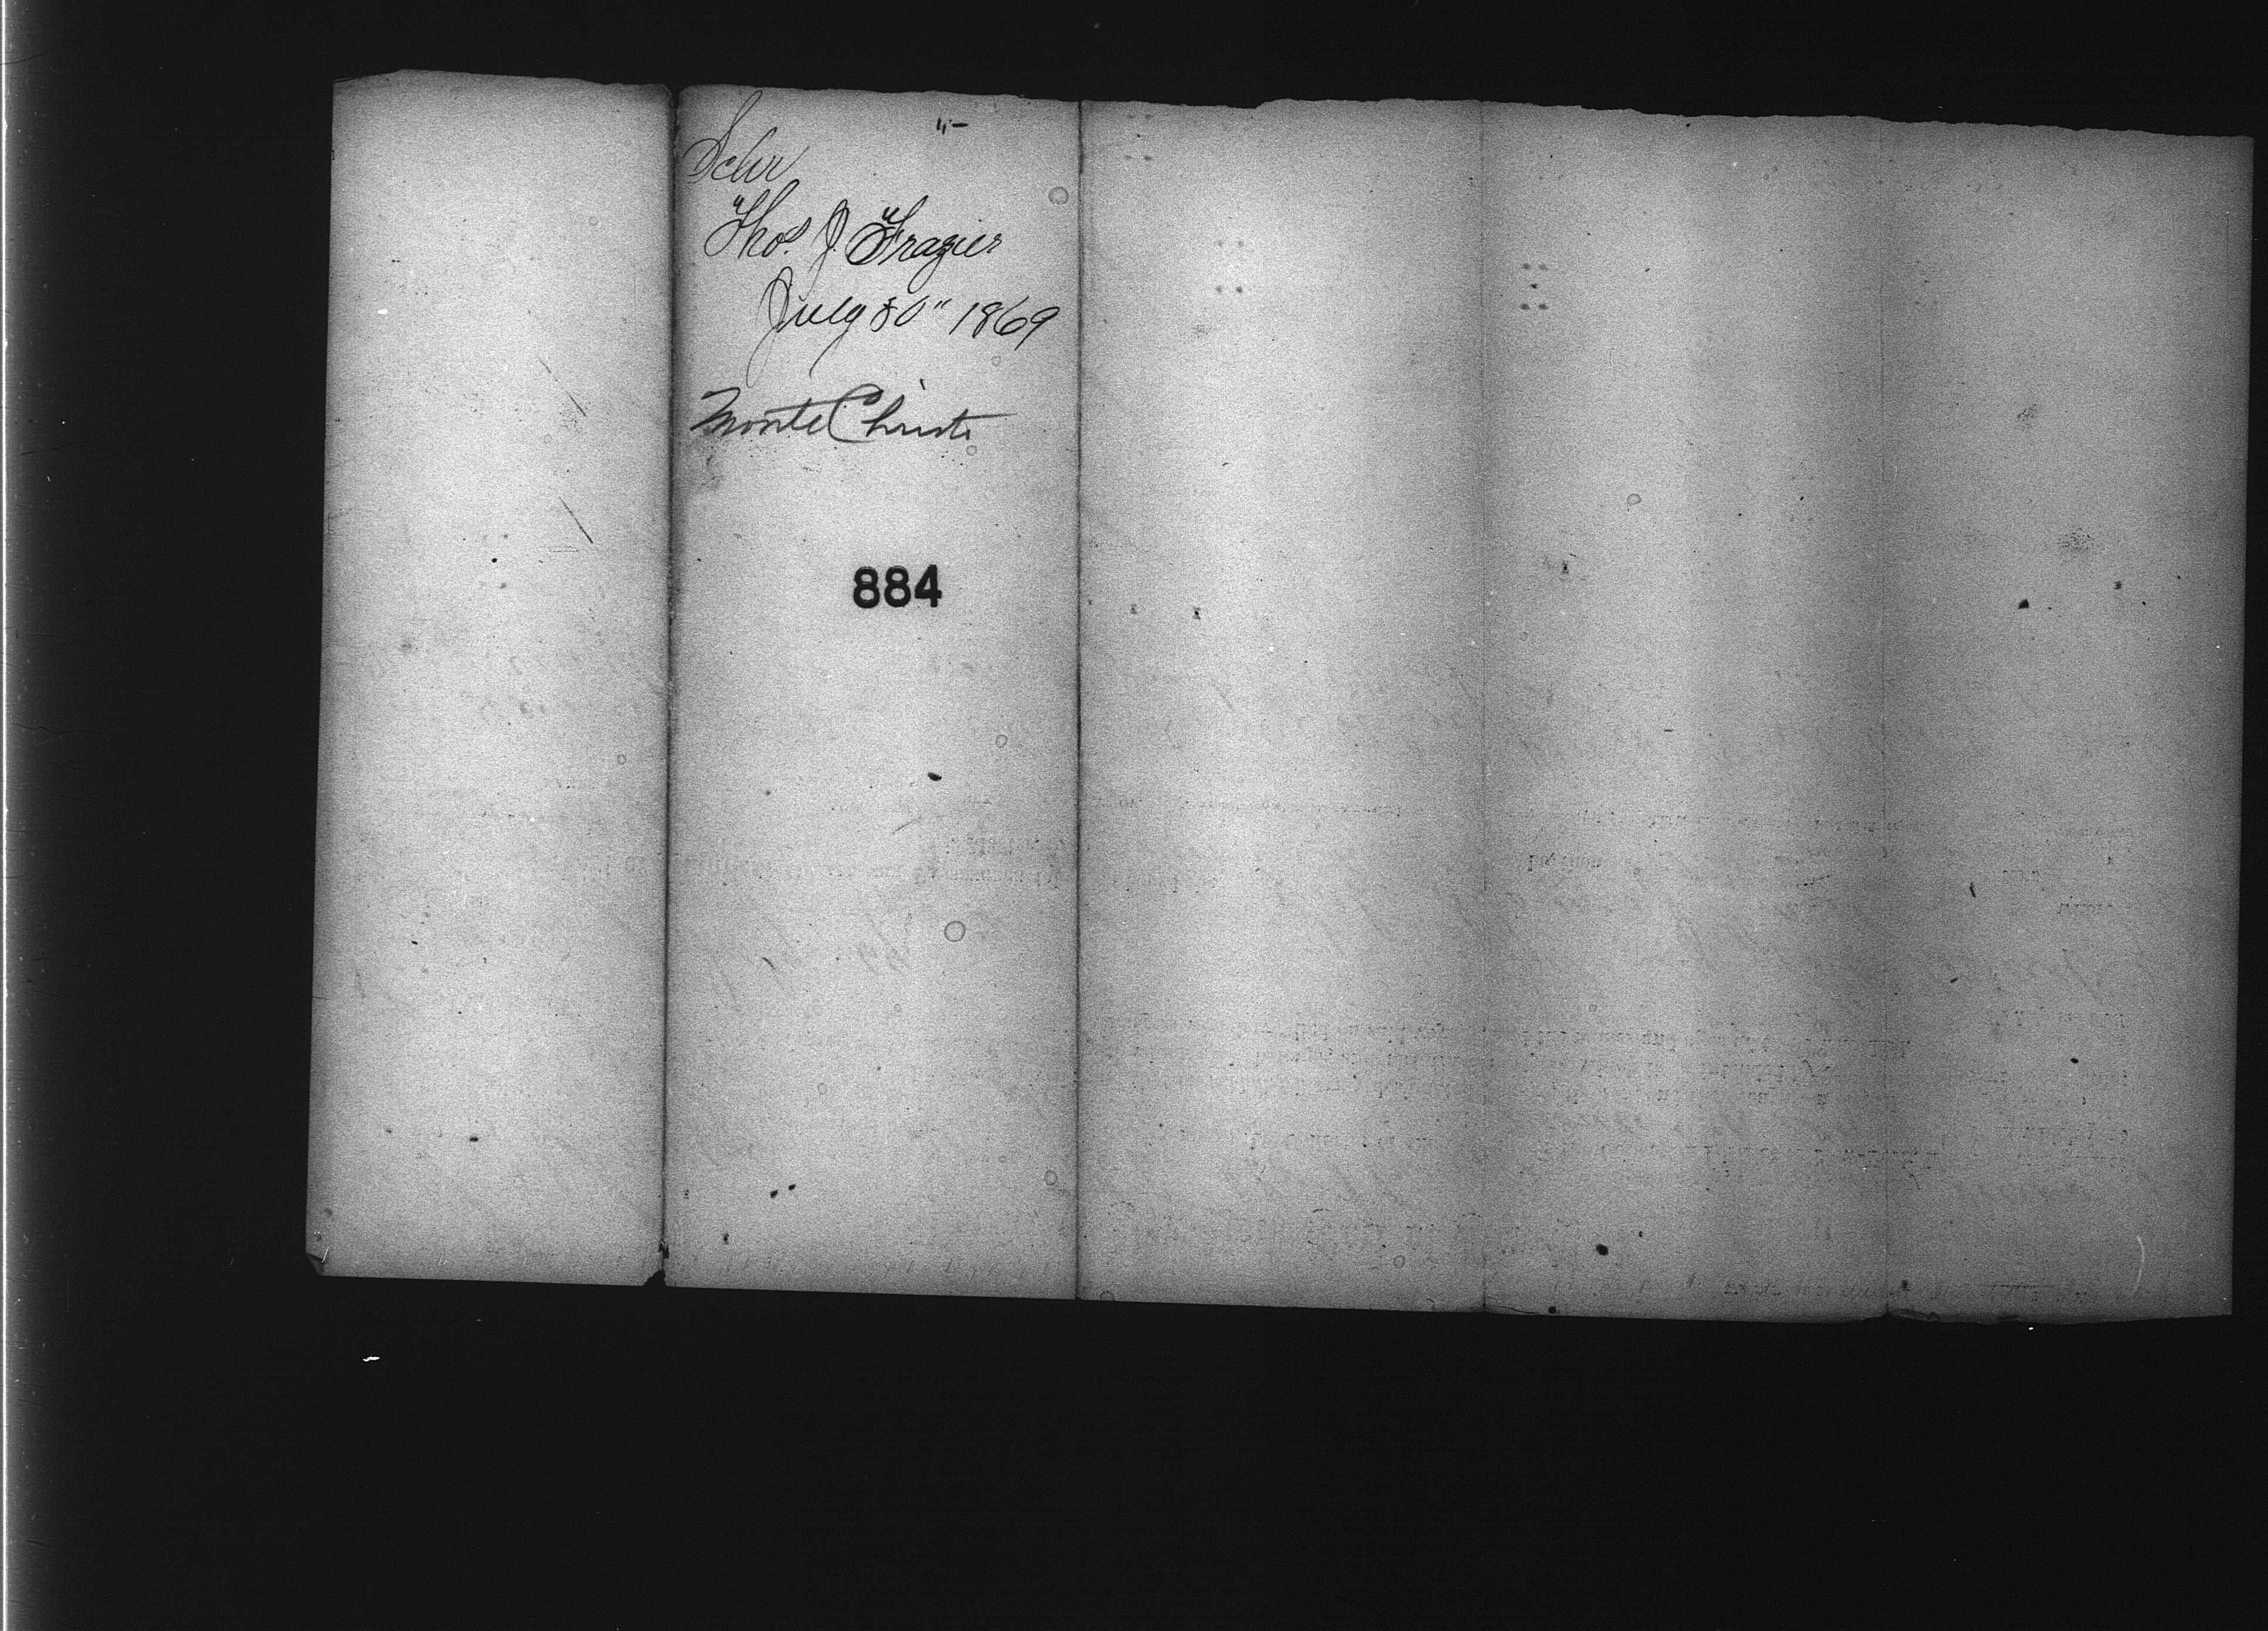 Schr
"Thos. J. Frazier"
July 30" 1869
Monte Christi
884